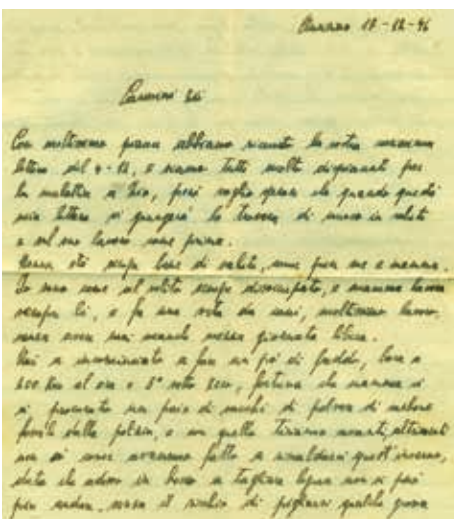 17-12-46
Carissimi zii
Con moltissimo piacere abbiamo ricevuto la vostra carissima
lettera del 4-12, e siamo tutti molto dispiaciuti per
la malattia di zio, però voglio sperare che quando questa
mia lettera vi giungerà lo troverà di nuovo in salute
e al suo lavoro come prima.
sta sempre bene di salute, come pure me e mamma.
Io sono come al solito sempre disoccupato, e mamma lavora
sempre lì, e fa una vita da cani, moltissimo lavoro,
senza avere mai neanche mezza giornata libera.
Qui a incominciato a fare un pò di freddo, bora a
100 Km al ora e 5° sotto zero, fortuna che mamma si
è procurata un paio di sacchi di polvere di carbone
fossile dalla polizia, e con quello tiriamo avanti, altrimenti
non so come avremmo fatto a scaldarci quest'inverno,
dato che adesso in bosco a tagliare legna non si può
più andare, senza il rischio di pigliarsi qualche